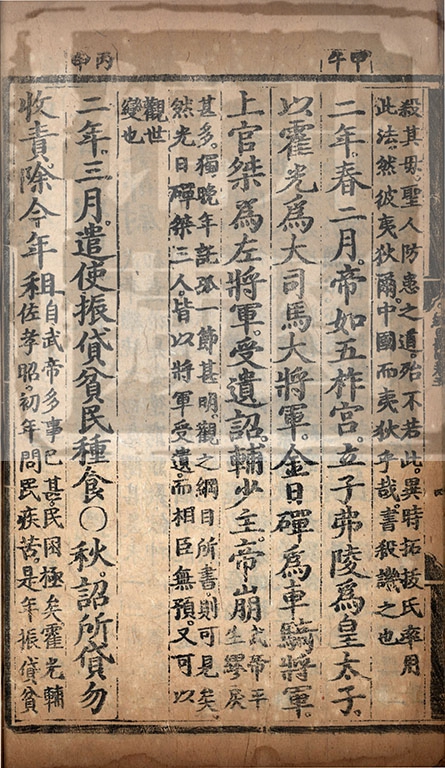 甲午
殺其毋。聖人防患之道。殆不若此。異時拓拔氏率用
此法然彼夷狄爾。中國而夷狄乎哉。書殺譏之也
二年。春二月。帝如五柞宮。立子弗陵爲皇太子。
以霍光爲大司馬大將軍。金日磾爲車騎將軍。
上官桀爲左將軍。受遺詔。輔少主。帝崩武帝平生繆戾
甚多。獨晚年託孤一節甚明。觀之綱目所書。則可見矣。
然光日磾桀三人皆以將軍受遺而相臣無預。又可以
觀世
變也
丙申
二年。三月。遣使振貸貧民種食〇秋。詔所貸勿
收責。除今年租自武帝多事已甚。民困極矣。霍光輔
佐孝昭。初年問民疾苦。是年振貸貧